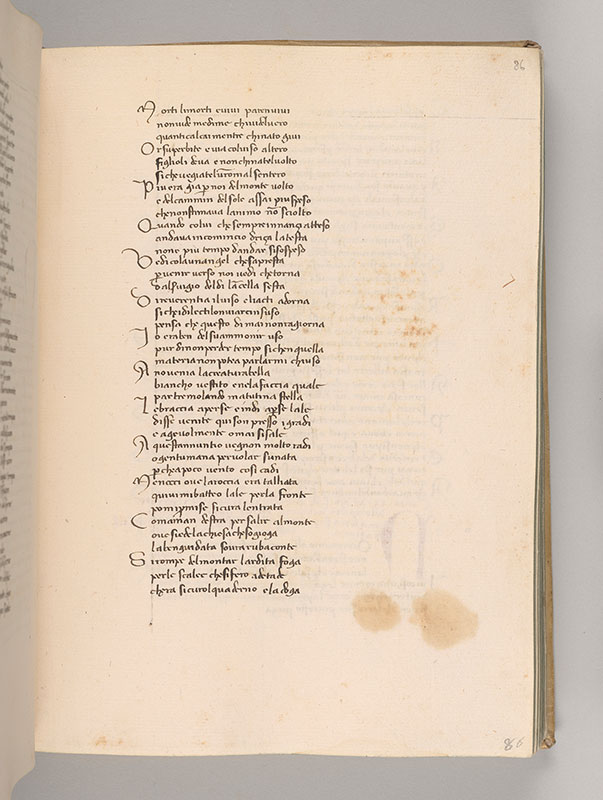 86
M orti li morti e vivi parean vivi
non vide me di me chi vide l vero
quanti calcai mentre chinato givi
O r superbite e via col viso altero
figlioli deva e non chinatel volto
si che vegiatel vr̄o mal sentero
P iu era gia p noi del monte volto
e del cammin del sole assai piu speso
che non stimava lanimo nō sciolto
Q uando colui che sempre innanzi atteso
andava incomincio driça la testa
none piu tempo dandar si sospeso
V edi cola un angel che sapresta
p venir verso noi vedi che torna
dal servigio del di lācella sesta
D i reverentia il viso e li acti adorna
si chei dilecti lo nviarci n suso
pensa che questo di mai non ragiorna
I o era ben del suo ammonir uso
pur di non perder tempo si che n quella
materia non potea parlarmi chiuso
A noi venia la creatura bella
biancho vestito e ne la faccia quale
par tremolando matutina stella
L e braccia aperse e indi apse lale
disse venite qui son presso i gradi
e agevolmente omai si sale
A questo annuntio vegnon molto radi
o gente umana per volar su nata
p che a poco vento cosi cadi
M enocci ove la roccia era tagliata
quivi mi batteo lale per la fronte
poi mi pmise sicura lentrata
C ome a man destra per salir al monte
ove siede la chiesa che sogioga
la ben guidata sovra rubaconte
S i rompe del montar lardita foga
per le scalee che si fero a detade
chera sicuro l quaderno e la doga
86